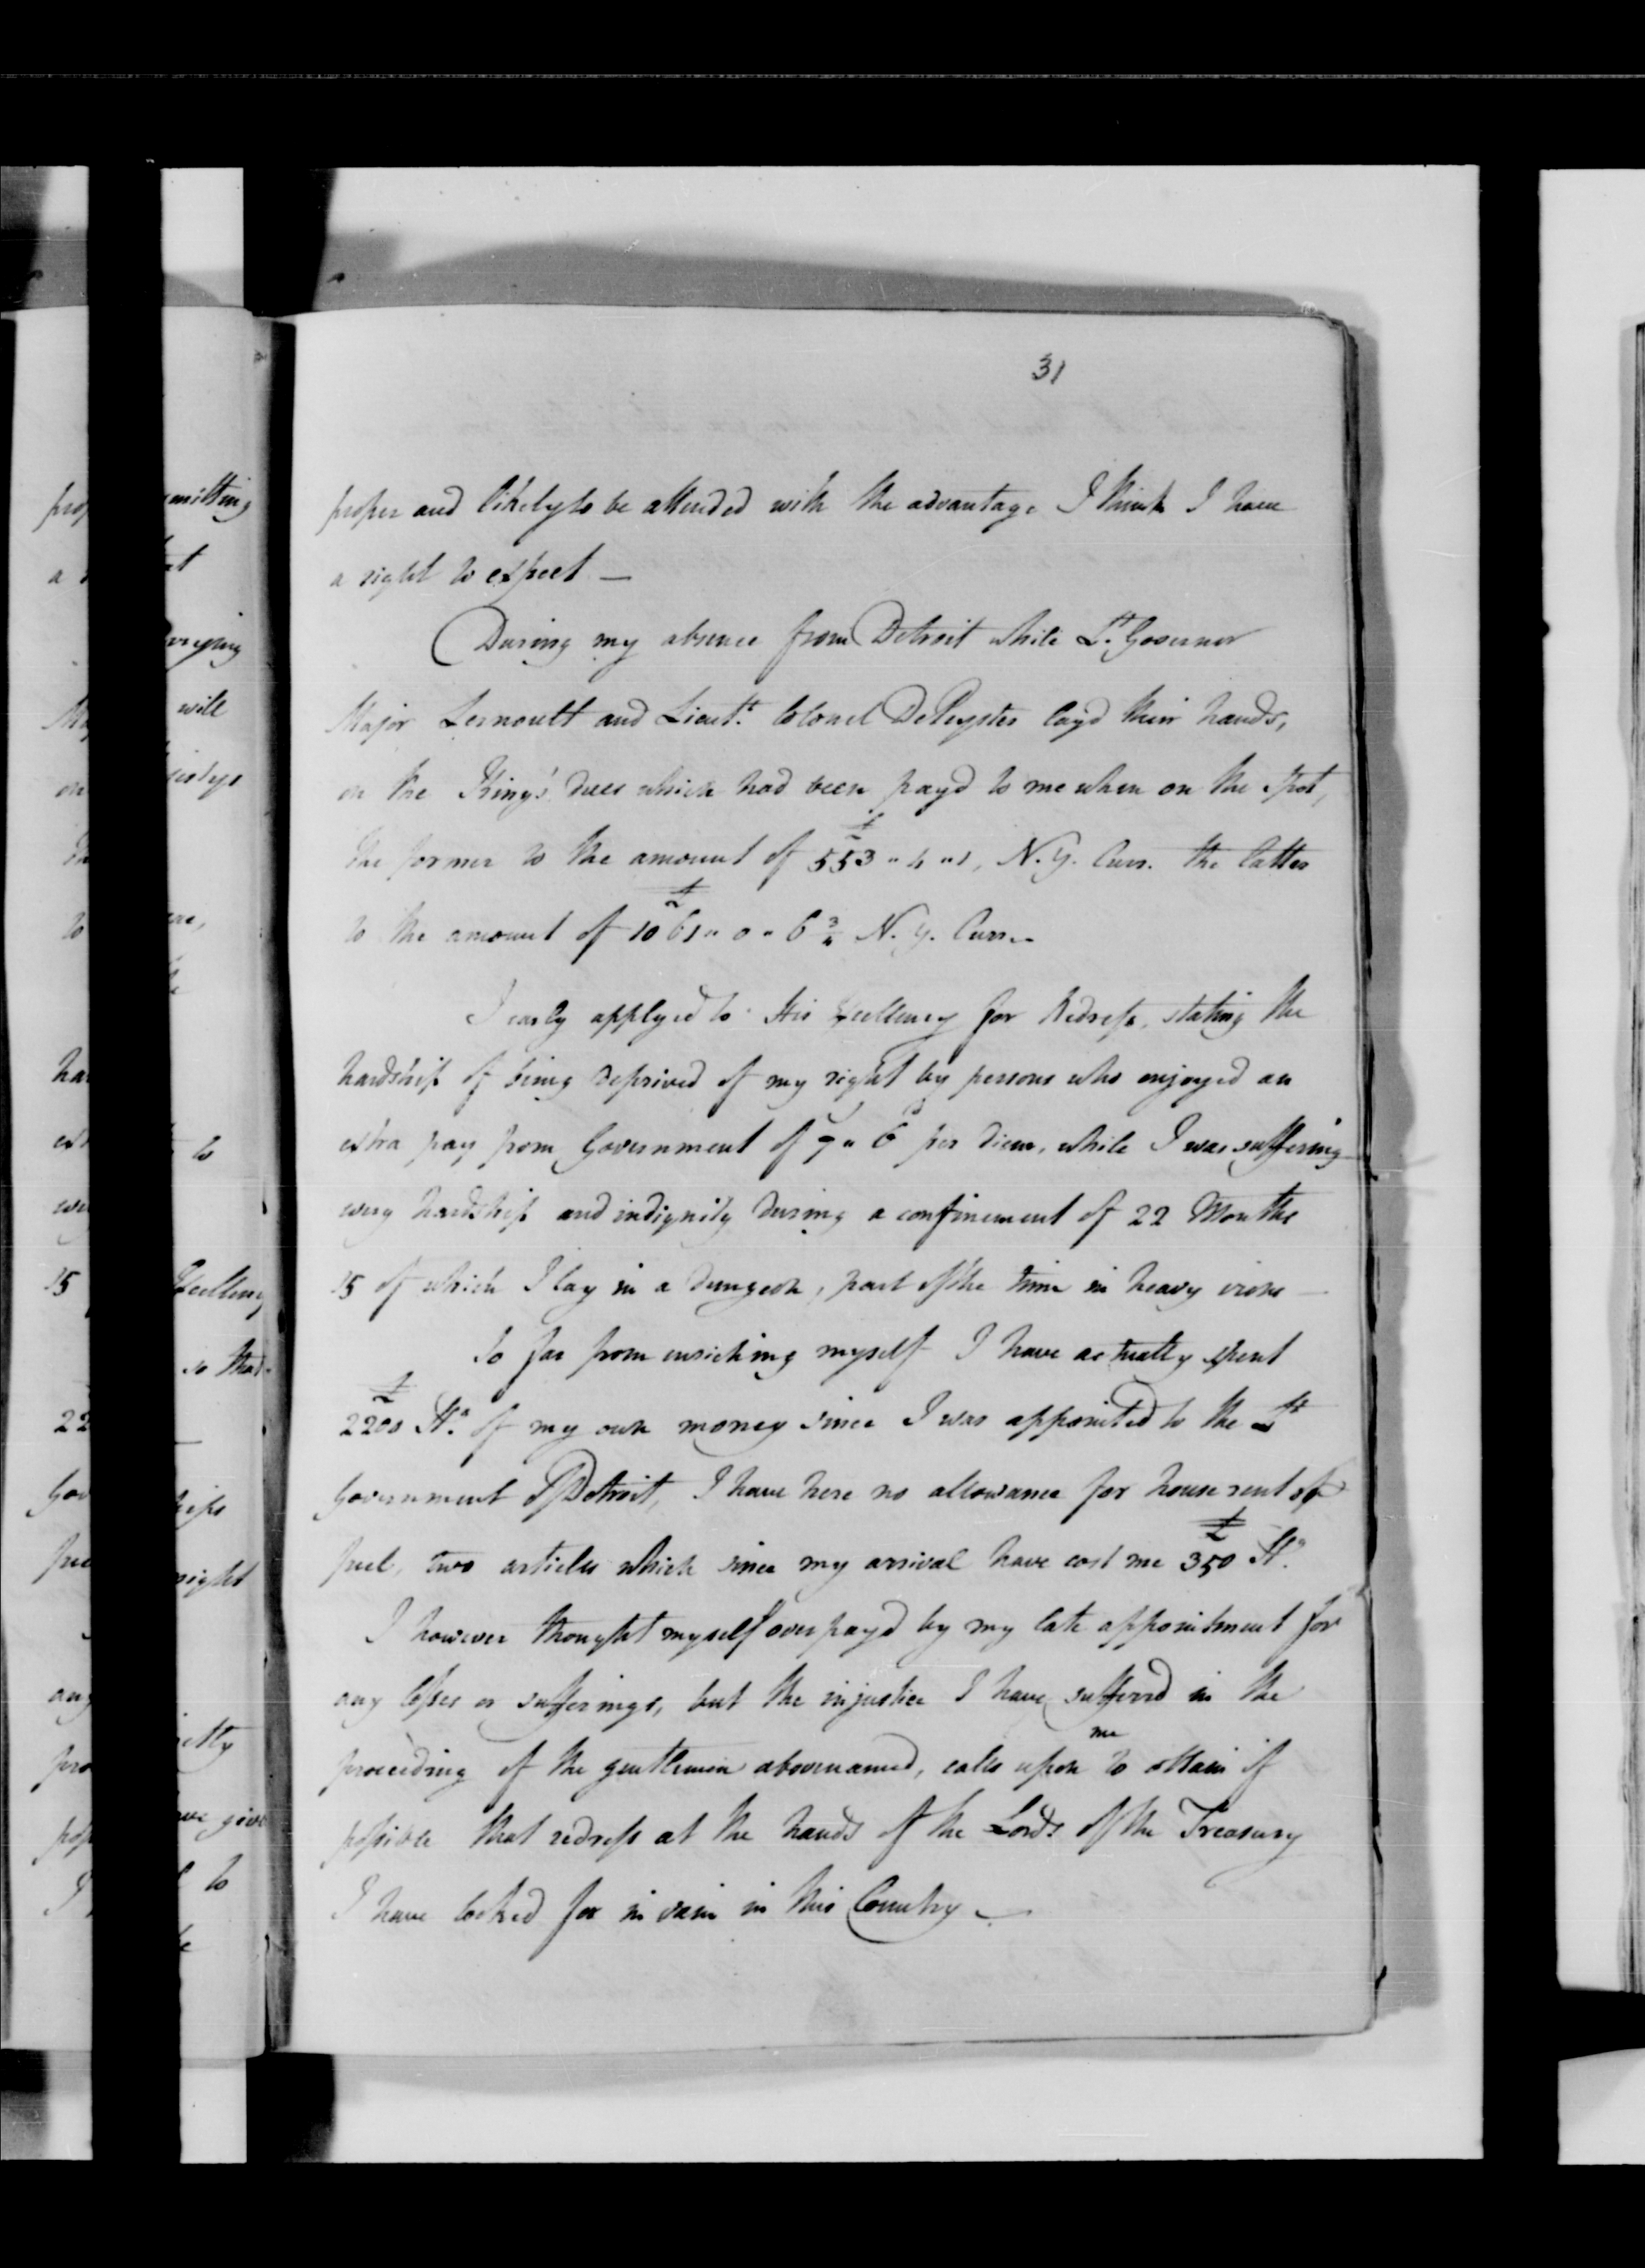 31
proper and likely to be attended with the advantage I think I have
a right to expect —
During my absence from Detroit while Lt. Governor
Major Lernoult and Lieutt. Colonel DePeyster lay'd their hands,
on the King's dues which had been pay'd to me when on the spot,
the former to the amount of £553 " 4 " 1, N.Y. Curr. the latter
to the amount of £1061 " 0 " 6 3/4 N.Y. Curr. —
I early applyed to His Excellency for Redress, stating the
hardship of being deprived of my right by persons who enjoyed an
extra pay from Government of " 6d per diem, while I was suffering
every hardship and indignity during a confinement of 22 Months
15 of which I lay in a dungeon, part of the time in heavy irons —
So far from enriching myself I have actually spent
£2200 Stg. of my own money since I was appointed to the Lt
Government of Detroit, I have here no allowance for house rent or
fuel, two articles which since my arrival have cost me £350 Stg.
I however thought myself overpay'd by my late appointment for
any losses or sufferings, but the injustice I have sufferrd in the
proceeding of the gentlemen abovenamed, calls upon me to obtain if
possible that redress at the hands of the Lords of the Treasury
I have looked for in vain in this Country —